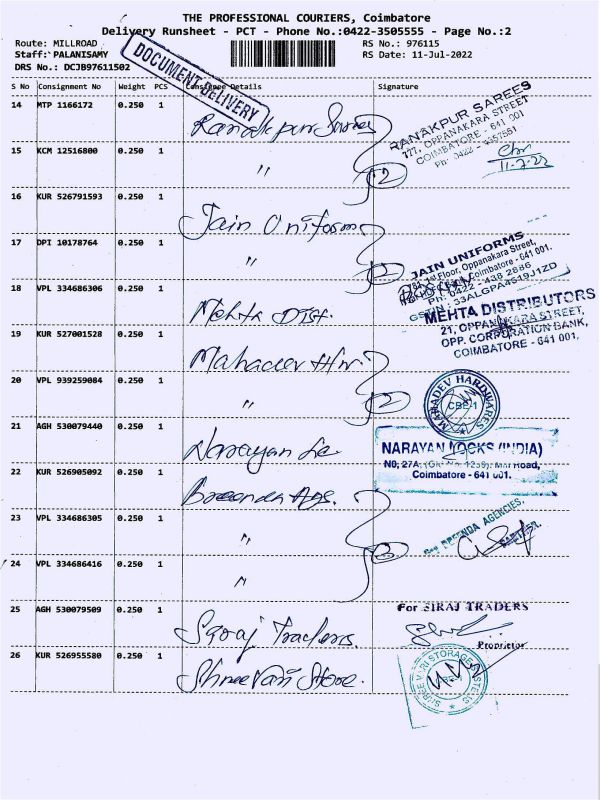 THE PROFESSIONAL COURIERS, Coimbatore
Delivery Runsheet - PCT - Phone No.:0422-3505555 - Page No.:2
Route: MILLROAD RS No.: 976115
Staff: PALANISAMY RS Date: 11-Jul-2022
DRS No.: DCJB97611502
DOCUMENT DELIVERY
S No Consignment No Weight PCS Consignee Details Signature
14 MTP 1166172 0.250 1 Ranakpur Sarees
RANAKPUR SAREES
777, OPPANAKARA STREET
COIMBATORE - 641 001
15 KCM 12516800 0.250 1 " 2
11-7-22
16 KUR 526791593 0.250 1 Jain Uniforms
17 DPI 10178764 0.250 1 " 2
JAIN UNIFORMS
1st Floor, Oppanakara Street,
Coimbatore - 641 001.
Ph: 0422 - 438 2886
GSTIN : 33ALGPA4519J1ZD
18 VPL 334686306 0.250 1 Mehta Dist.
MEHTA DISTRIBUTORS
21, OPPANAKARA STREET,
OPP. CORPORATION BANK,
COIMBATORE - 641 001.
19 KUR 527001528 0.250 1 Mahadev H/w.
20 VPL 939259084 0.250 1 " 2
MAHADEV HARDWARES
CBE-1
21 AGH 530079440 0.250 1 Narayan Lo
NARAYAN LOCKS (INDIA)
N0, 27A, Mill Road,
Coimbatore - 641 001.
22 KUR 526905092 0.250 1 Age.
23 VPL 334686305 0.250 1 "
AGENCIES,
24 VPL 334686416 0.250 1 "
25 AGH 530079509 0.250 1 Siraj Traders.
For SIRAJ TRADERS
Proprietor
26 KUR 526955580 0.250 1 Shree Vari Store.
SHREE VARI STORAGE SYSTEMS